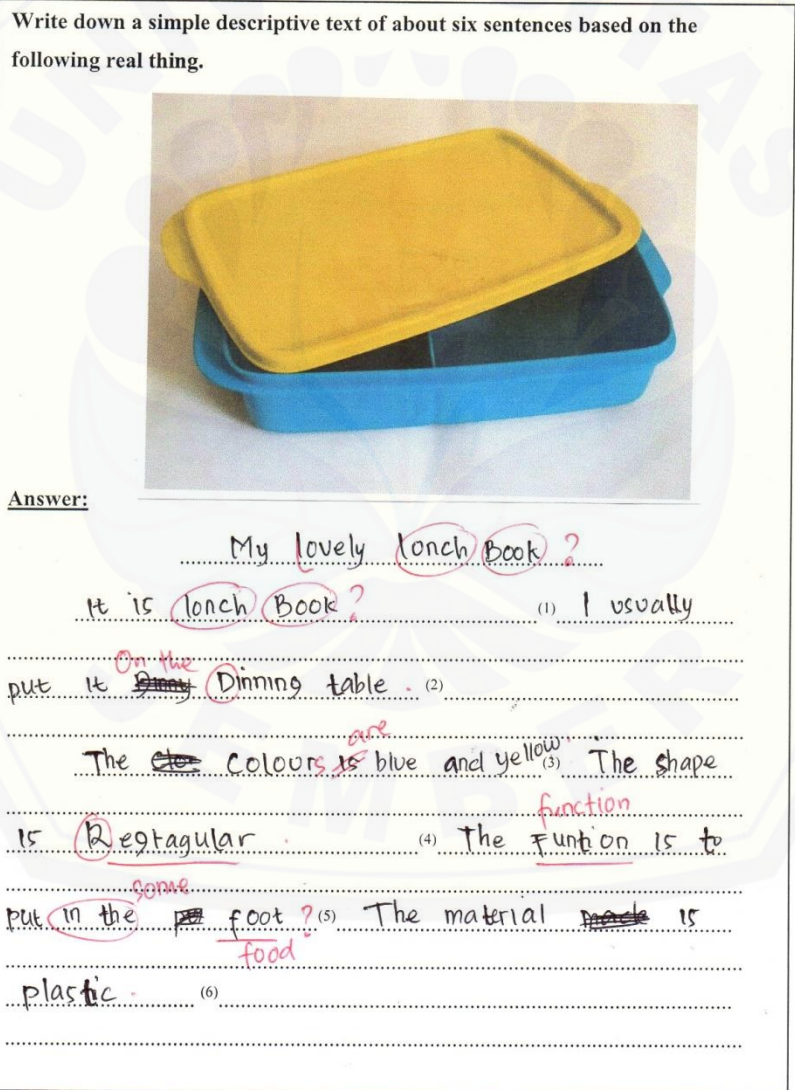 Write down a simple descriptive text of about six sentences based on the
following real thing.
Answer:
My lovely lonch Book ?
It is lonch Book ? (1) I usually
On the
put it Dinning table . (2)
are
The Colours is blue and yellow. (3) The shape
function
is Regtagular . (4) The Funtion is to
some
put in the foot ? (5) The material is
food
plastic . (6)